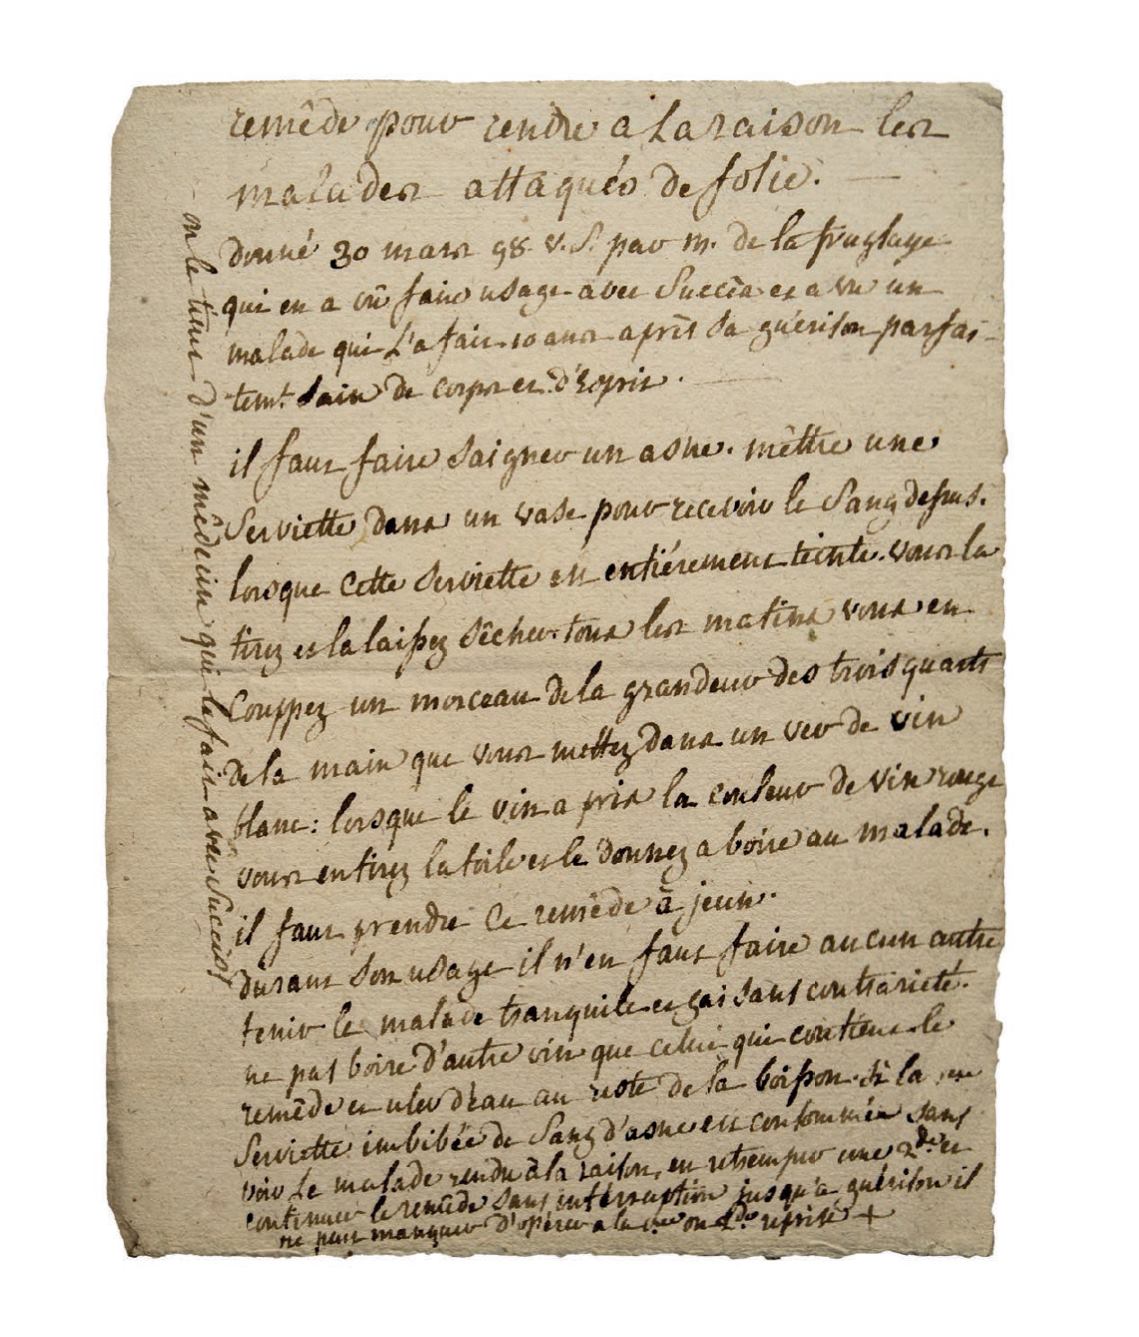 remêde pour rendre a La raison les
malades attaqués de folie.
donné 30 mars 98 v. S. par m. de la fruglaye
qui en a vû faire usage avec Succès et a vu un
malade qui L'a fait 10 ans après sa guérison parfai-
temt. sain de corps et d'Esprit.
il faut faire saigner un asne. mêttre une
Serviette dans un vase pour recevoir le Sang dessus.
lorsque cette serviette est entiérement teinte. vous la
tirez et la laissez sêcher. tous les matins vous en
Couppez un morceau de la grandeur des trois quarts
de la main que vous mettez dans un ver de vin
blanc: lorsque le vin a pris la couleur de vin rouge
vous en tirez la toile et le donnez a boire au malade.
il faut prendre ce remède à jeun.
durant son usage il n'en faut faire aucun autre
tenir le malade tranquile et gai sans contrarieté.
ne pas boire d'autre vin que celui qui contient le
remêde et user d'eau au reste de la boisson. Si la 1re
Serviette imbibée de Sang d'asne est consommée sans
voir Le malade rendu à la raison, en retremper une 2de et
continuer le remêde sans intérruption jusqu'a guérison il
ne peut manquer d'opérer a la 1re ou 2de reprise +
on le tient d'un mêdecin qui le fait avec Succès